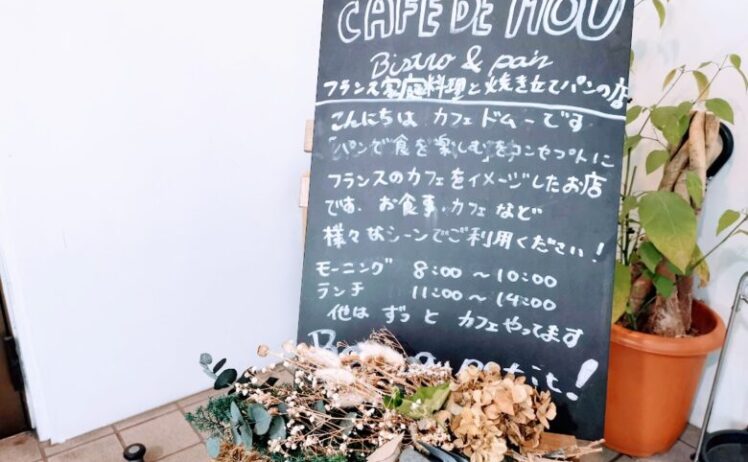 CAFE DE MOU
Bistro & pain
フランス家庭料理と焼き立てパンの店
こんにちは カフェドムーです
「パンで食を楽しむ」をコンセプトに
フランスのカフェをイメージしたお店
です. お食事.カフェなど
様々なシーンでご利用ください!
モーニング 8:00 ～ 10:00
ランチ 11:00 ～ 14:00
他は ずっと カフェやってます